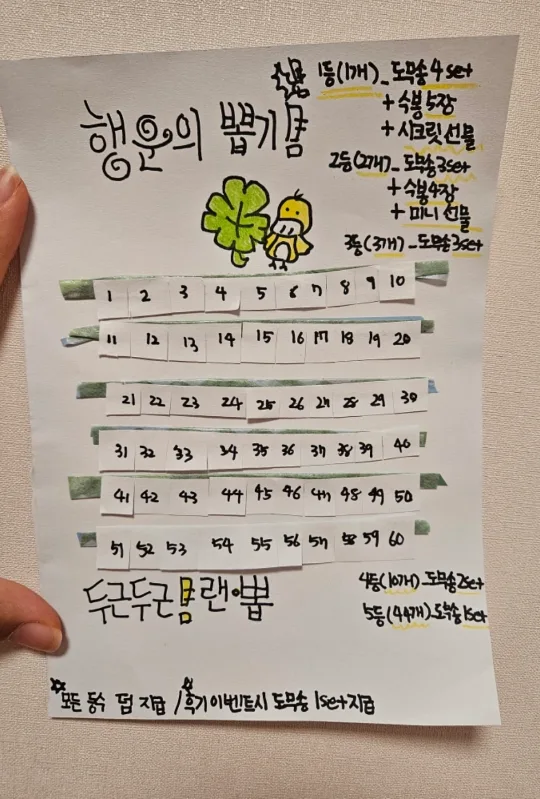 행운의 뽑기
1등(1개)_도무송 4set
+ 숙봉 5장
+ 시크릿 선물
2등(2개)_도무송 3set
+ 숙봉 4장
+ 미니 선물
3등(3개)_도무송 3set
1 2 3 4 5 6 7 8 9 10
11 12 13 14 15 16 17 18 19 20
21 22 23 24 25 26 27 28 29 30
31 32 33 34 35 36 37 38 39 40
41 42 43 44 45 46 47 48 49 50
51 52 53 54 55 56 57 58 59 60
두근두근 랜뽑
4등(10개)_도무송 2set
5등(44개)_도무송 1set
모든 등수 덤 지급 / 후기이벤트시 도무송 1set 지급